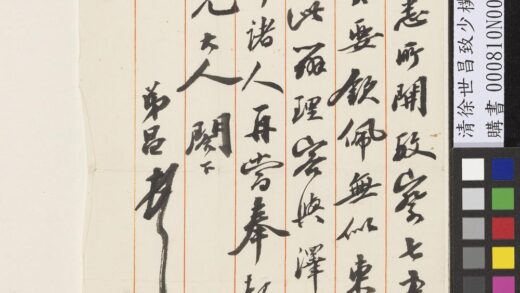 憲所開改察七
要欽佩無似東
辦理容與澤
諸人再當奉
兄大人閣下
弟昌
清徐世昌致少樸
購書 000810N00